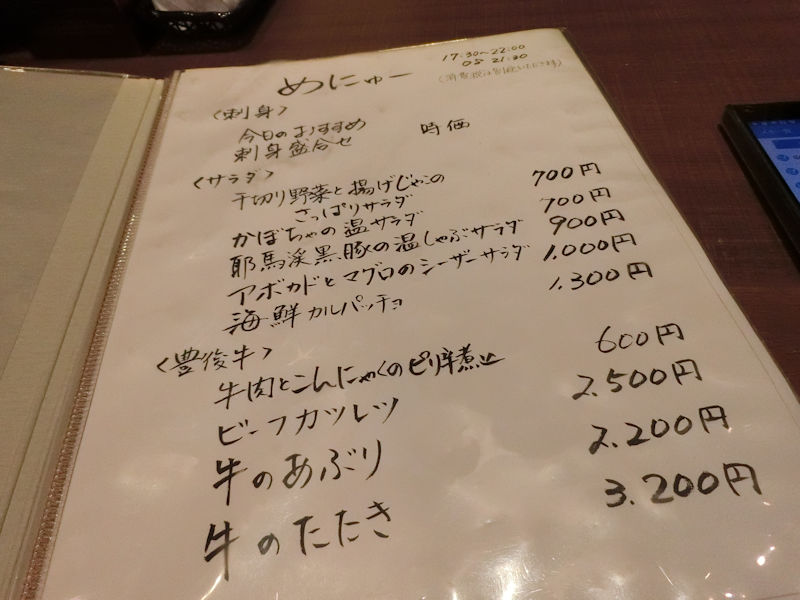 めにゅー
17:30〜22:00
OS 21:30
(消費税は別途いただきます)
〈刺身〉
今日のおすすめ
刺身盛合せ 時価
〈サラダ〉
千切り野菜と揚げじゃこの
さっぱりサラダ 700円
かぼちゃの温サラダ 700円
耶馬渓黒豚の温しゃぶサラダ 900円
アボカドとマグロのシーザーサラダ 1,000円
海鮮カルパッチョ 1,300円
〈豊後牛〉
牛肉とこんにゃくのピリ辛煮込 600円
ビーフカツレツ 2,500円
牛のあぶり 2,200円
牛のたたき 3,200円